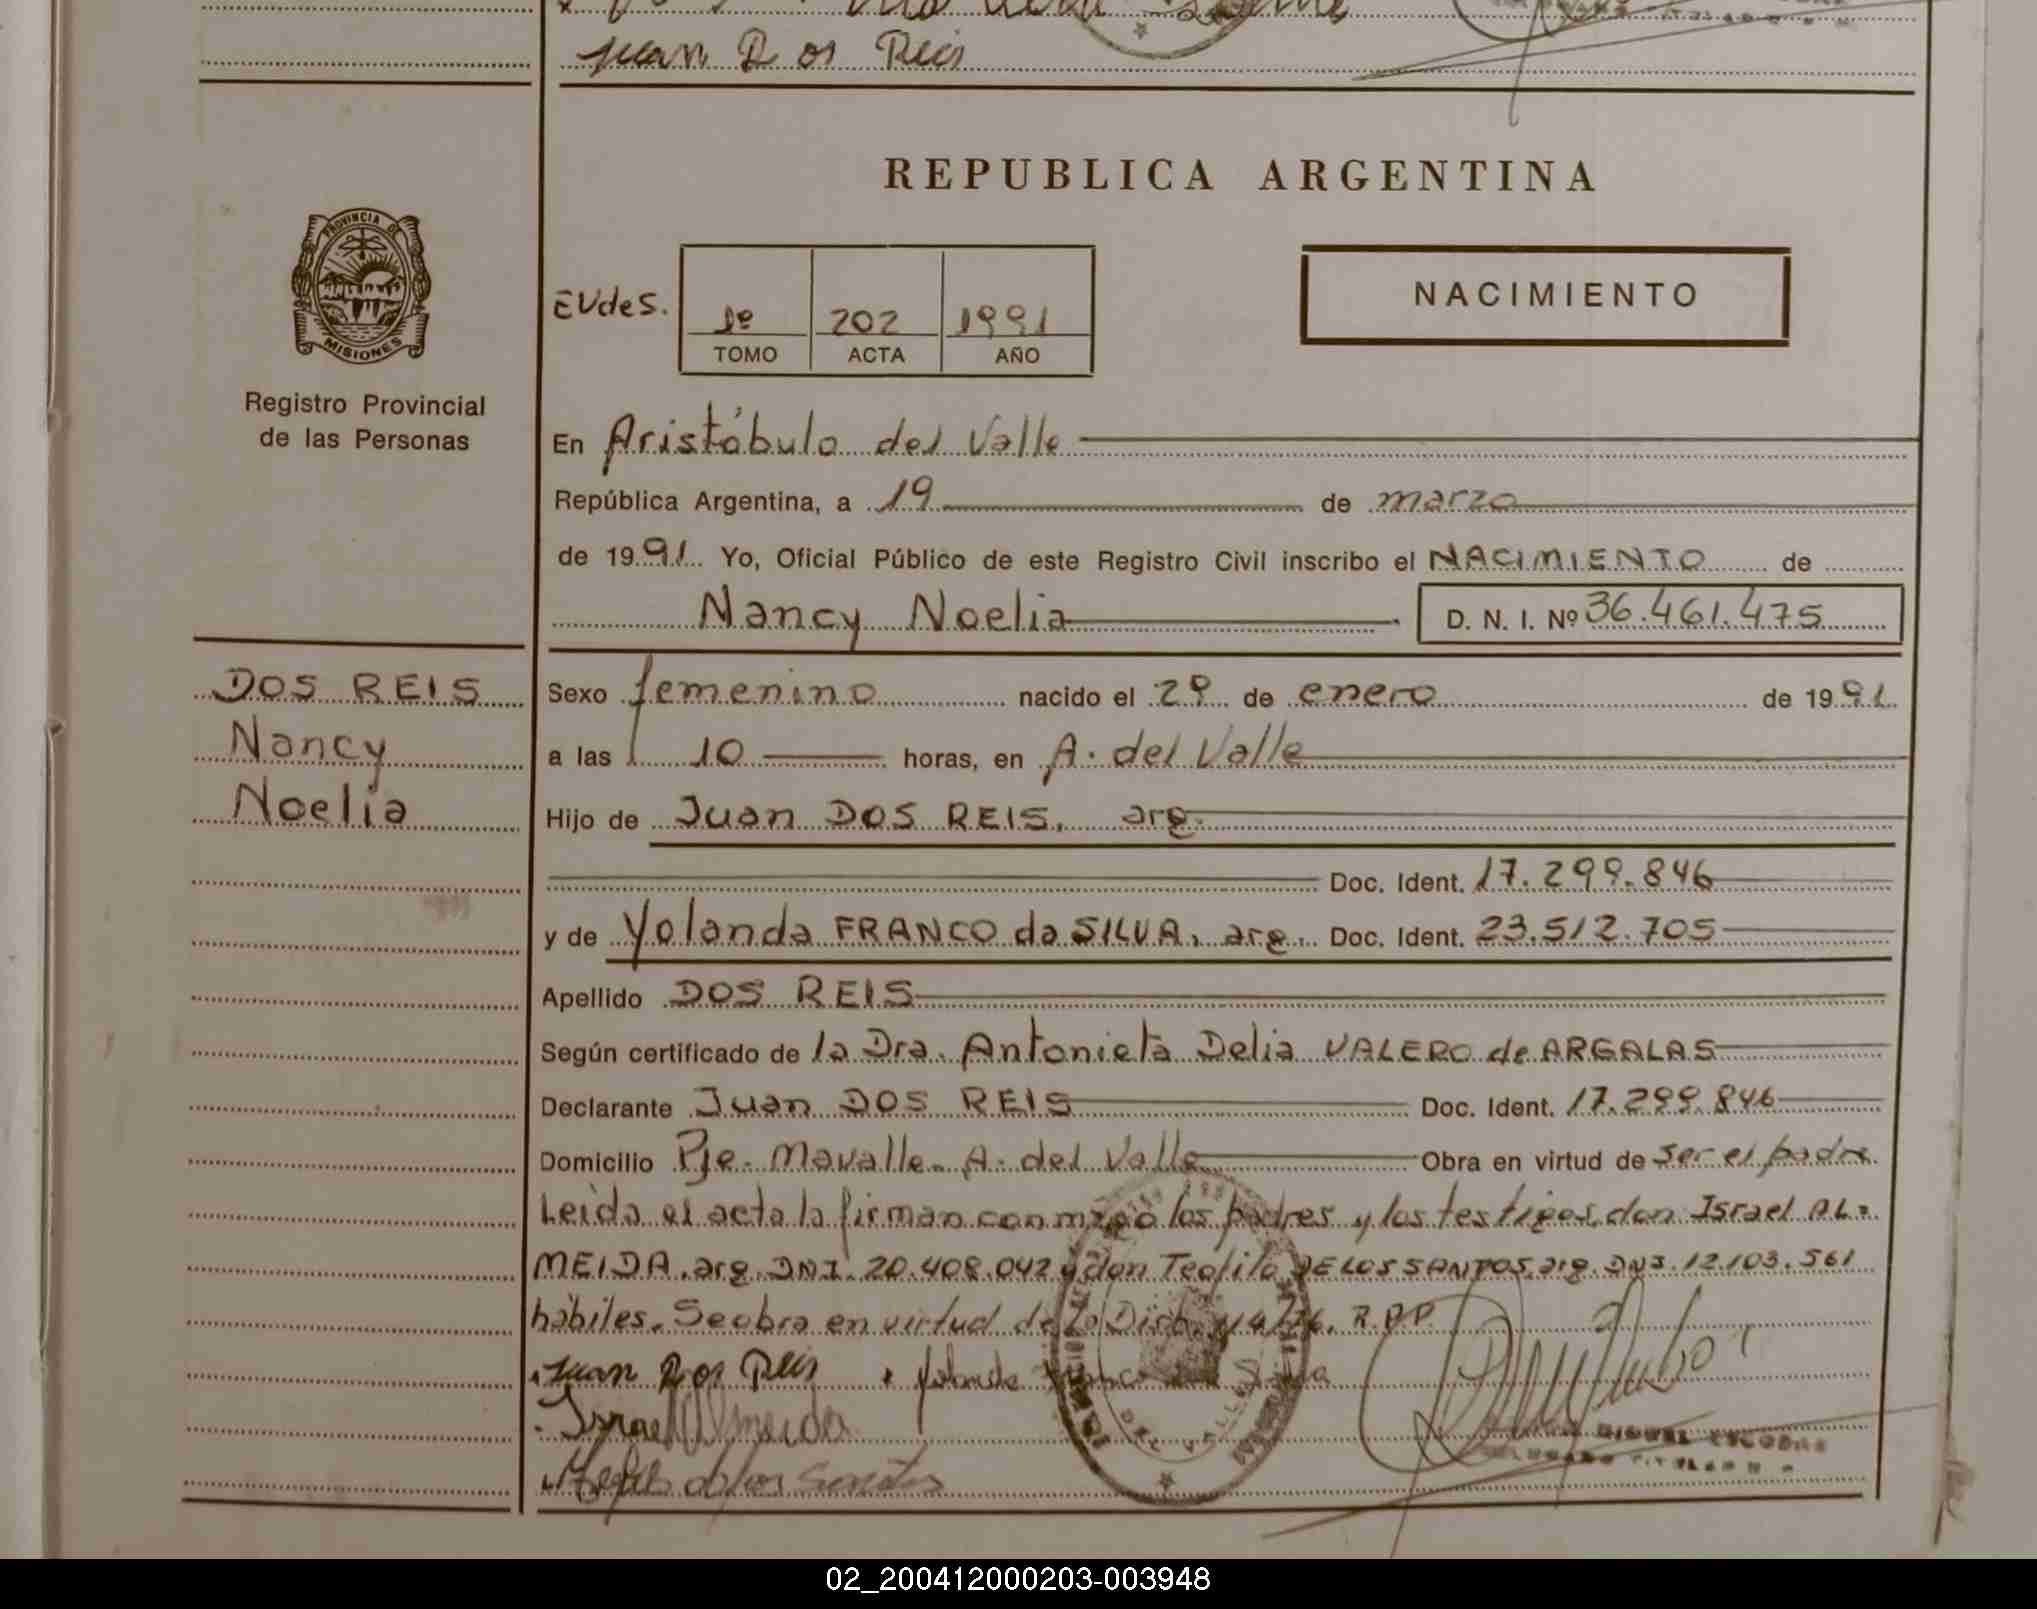 Juan Dos Reis
REPUBLICA ARGENTINA
PROVINCIA DE
MISIONES
Registro Provincial
de las Personas
EVdes.
1º 202 1991
TOMO ACTA AÑO
NACIMIENTO
En Aristóbulo del Valle
República Argentina, a 19 de marzo
de 1991. Yo, Oficial Público de este Registro Civil inscribo el NACIMIENTO de
Nancy Noelia D. N. I. Nº 36.461.475
DOS REIS
Nancy
Noelia
Sexo femenino nacido el 29 de enero de 1991
a las 10 horas, en A. del Valle
Hijo de Juan DOS REIS, arg.
Doc. Ident. 17.299.846
y de Yolanda FRANCO da SILVA, arg. Doc. Ident. 23.512.705
Apellido DOS REIS
Según certificado de la Dra. Antonieta Delia VALERO de ARGALAS
Declarante Juan DOS REIS Doc. Ident. 17.299.846
Domicilio Pje. Mavalle. A. del Valle Obra en virtud de ser el padre.
Leída el acta la firman conmigo los padres y los testigos, don Israel AL=
MEIDA, arg. DNI. 20.408.042 y don Teofilo DE LOS SANTOS, arg. DNI. 12.103.561
hábiles. Se obra en virtud de la R.P.P.
Juan Dos Reis
Israel Almeida
de los Santos
MIGUEL ESCOBAR
02_200412000203-003948